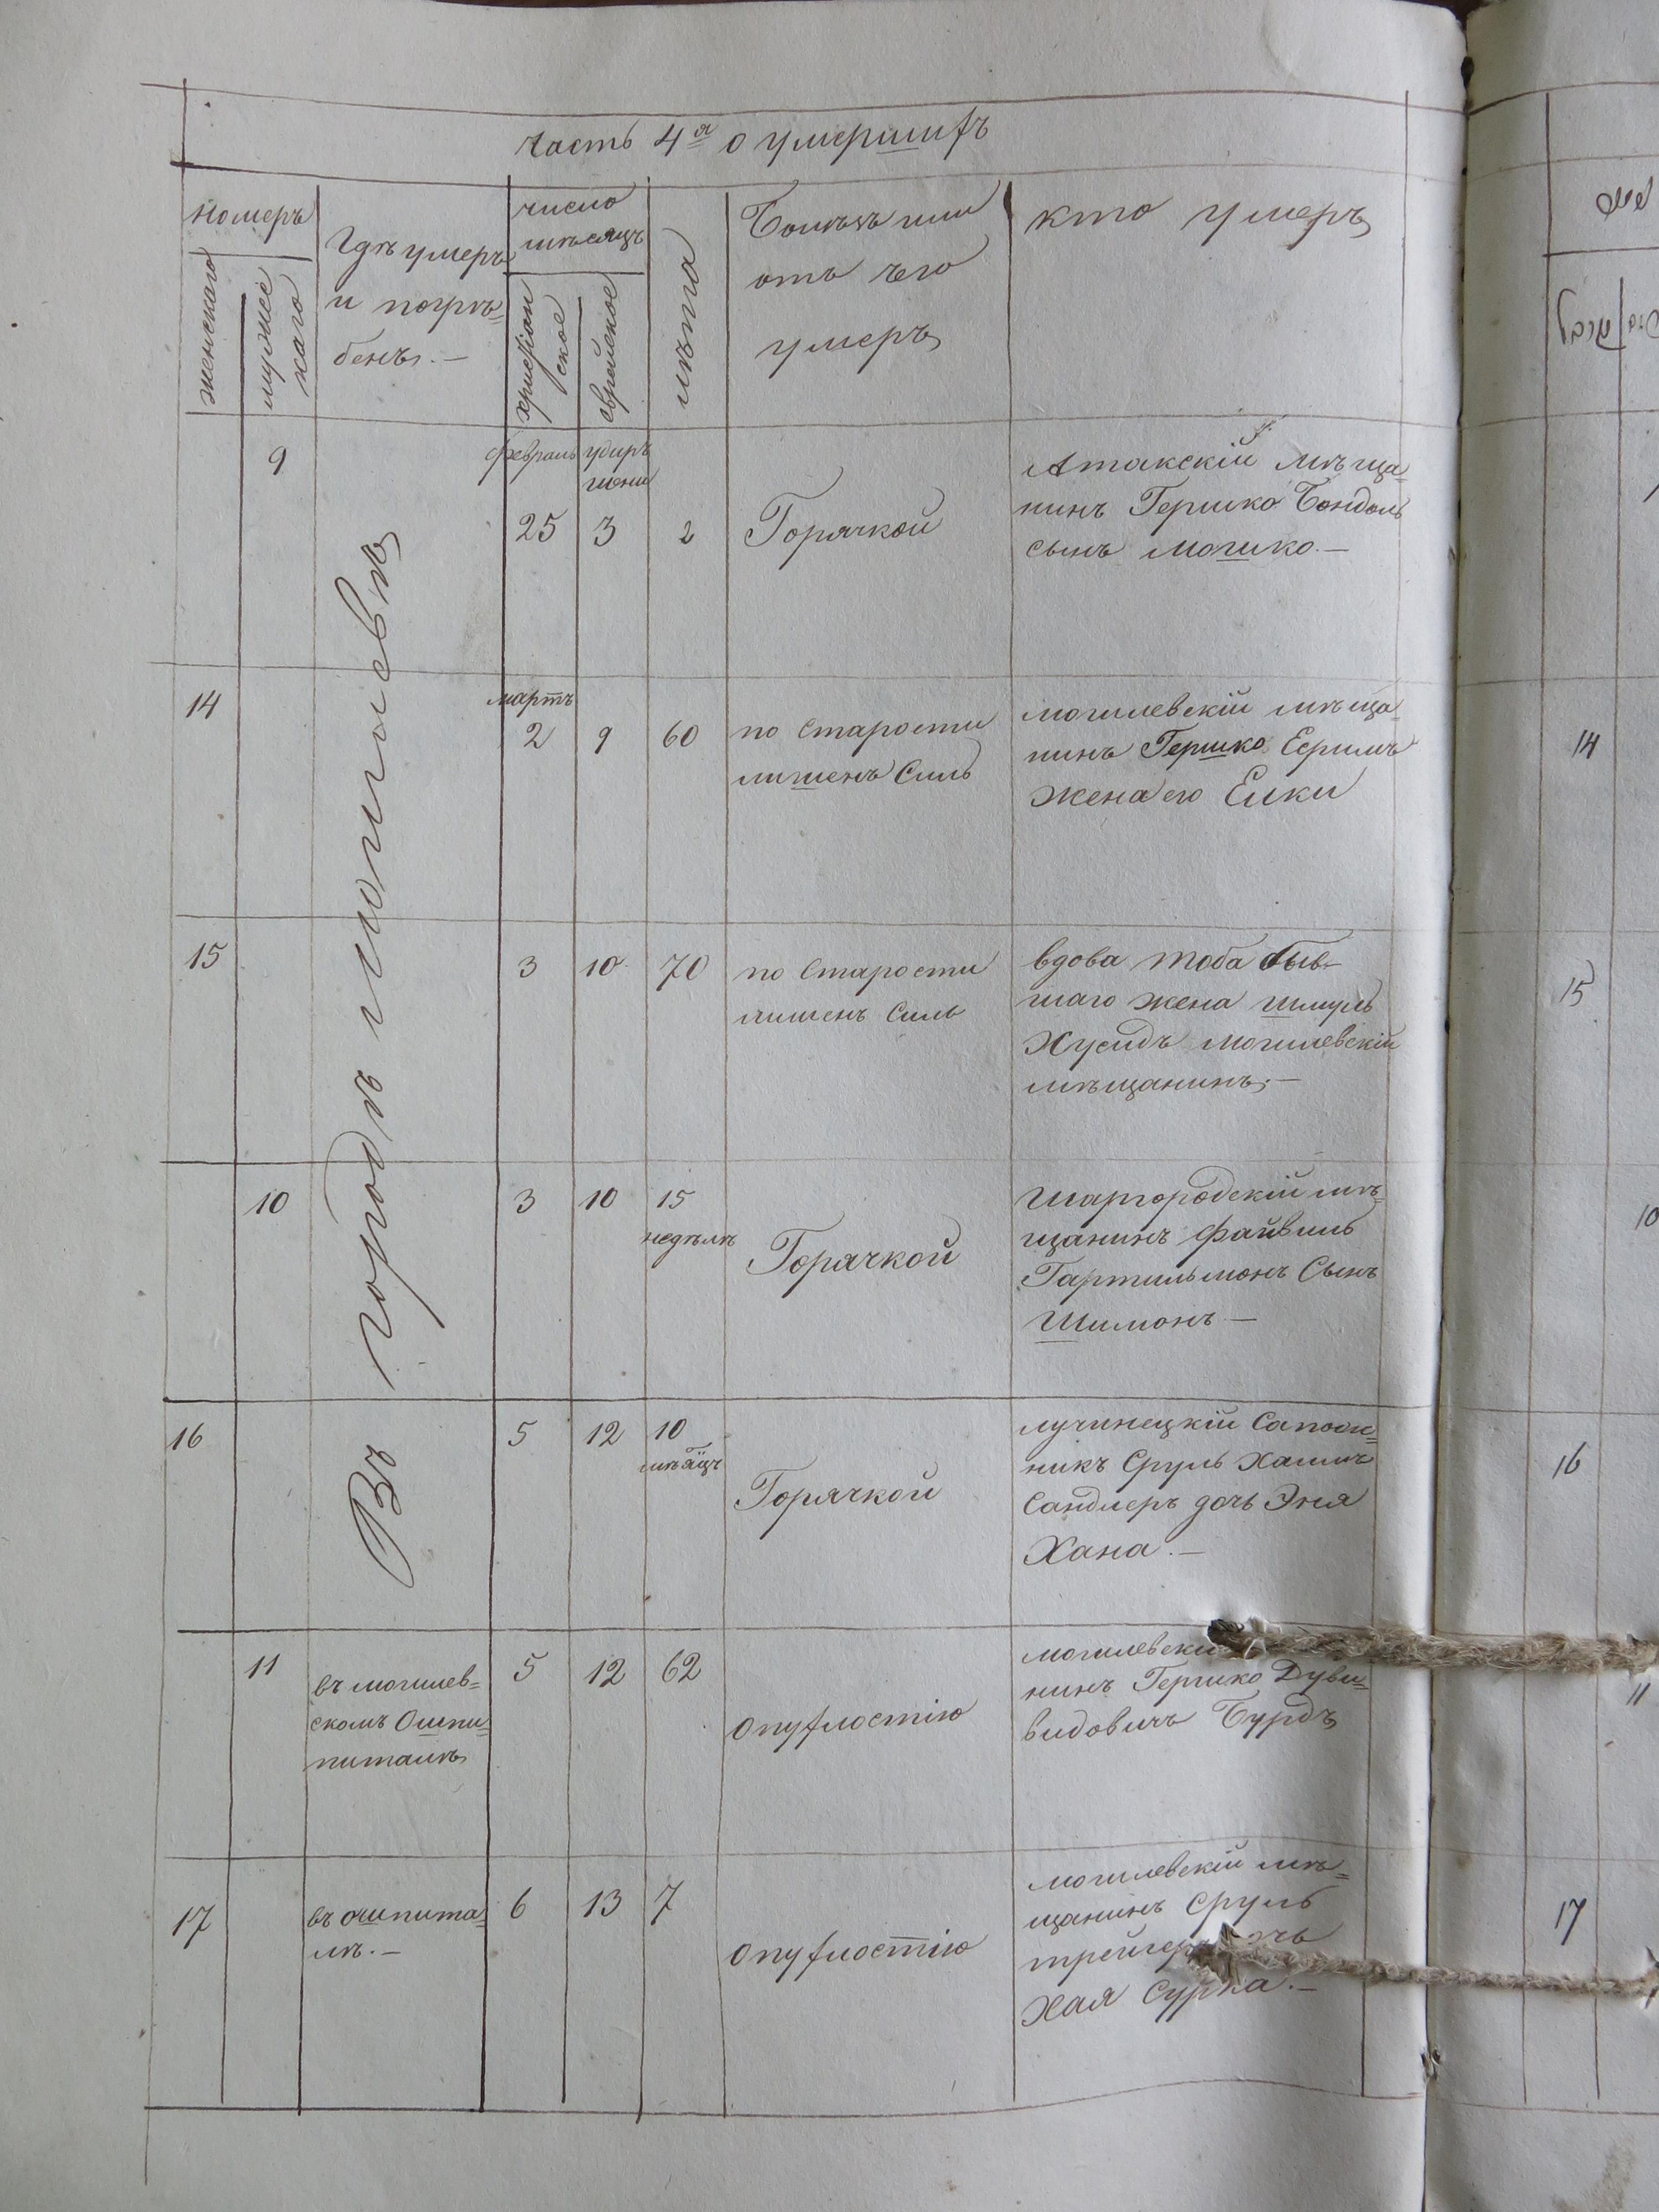 Часть 4я о умершихъ
Номеръ
женскаго
мужес
каго
Гдѣ умеръ
и погрѣ=
бенъ. —
число
мѣсяцъ
христіан
ское
еврейское
лѣта
Болѣзнь или
отъ чего
умеръ
кто умеръ
9
февраль
25
3
2
Горячкой
Атакскій мѣща=
нинъ Гершко Бондаль
сынъ Мошко. —
Въ городѣ Могилевѣ
14
мартъ
2
9
60
по Старости
лишенъ Силъ
могилевскій мѣща=
нинъ Гершко
жена его Елки
15
3
10
70
по Старости
лишенъ Силъ
вдова Тоба быв-
шаго жена Шмуль
Хусидъ могилевскій
мѣщанинъ. —
10
3
10
15
недѣлъ
Горячкой
Шаргородскій мѣ=
щанинъ Файвиль
Гартильманъ Сынъ
Шимонъ —
16
5
12
10
мѣсяцъ
Горячкой
лучинецкій Сапож=
никъ Сруль Хаимъ
Сандлеръ дочь Эня
Хана. —
11
въ могилев=
скомъ Ошпи=
питалѣ
5
12
62
опухлостію
могилевскій
нинъ Гершко Дуви=
видовичъ Бурдъ
17
въ ошпита=
лѣ. —
6
13
7
опухлостію
могилевскій мѣ=
щанинъ Сруль
трейгеръ дочь
Хая Сурка. —
14
15
10
16
11
17